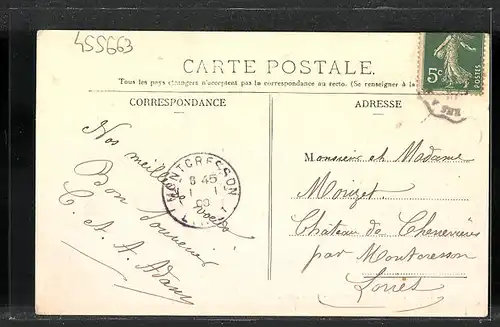 455663
CARTE POSTALE.
Tous les pays étrangers n'acceptent pas la correspondance au recto. (Se renseigner à la
CORRESPONDANCE
ADRESSE
5c
POSTES
Nos meilleurs
Bon Souvenir
C. et A. Adam
MONTCRESSON
8 45
Monsieur et Madame
Mouzet
Chateau de Chenevières
par Montcresson
Loiret